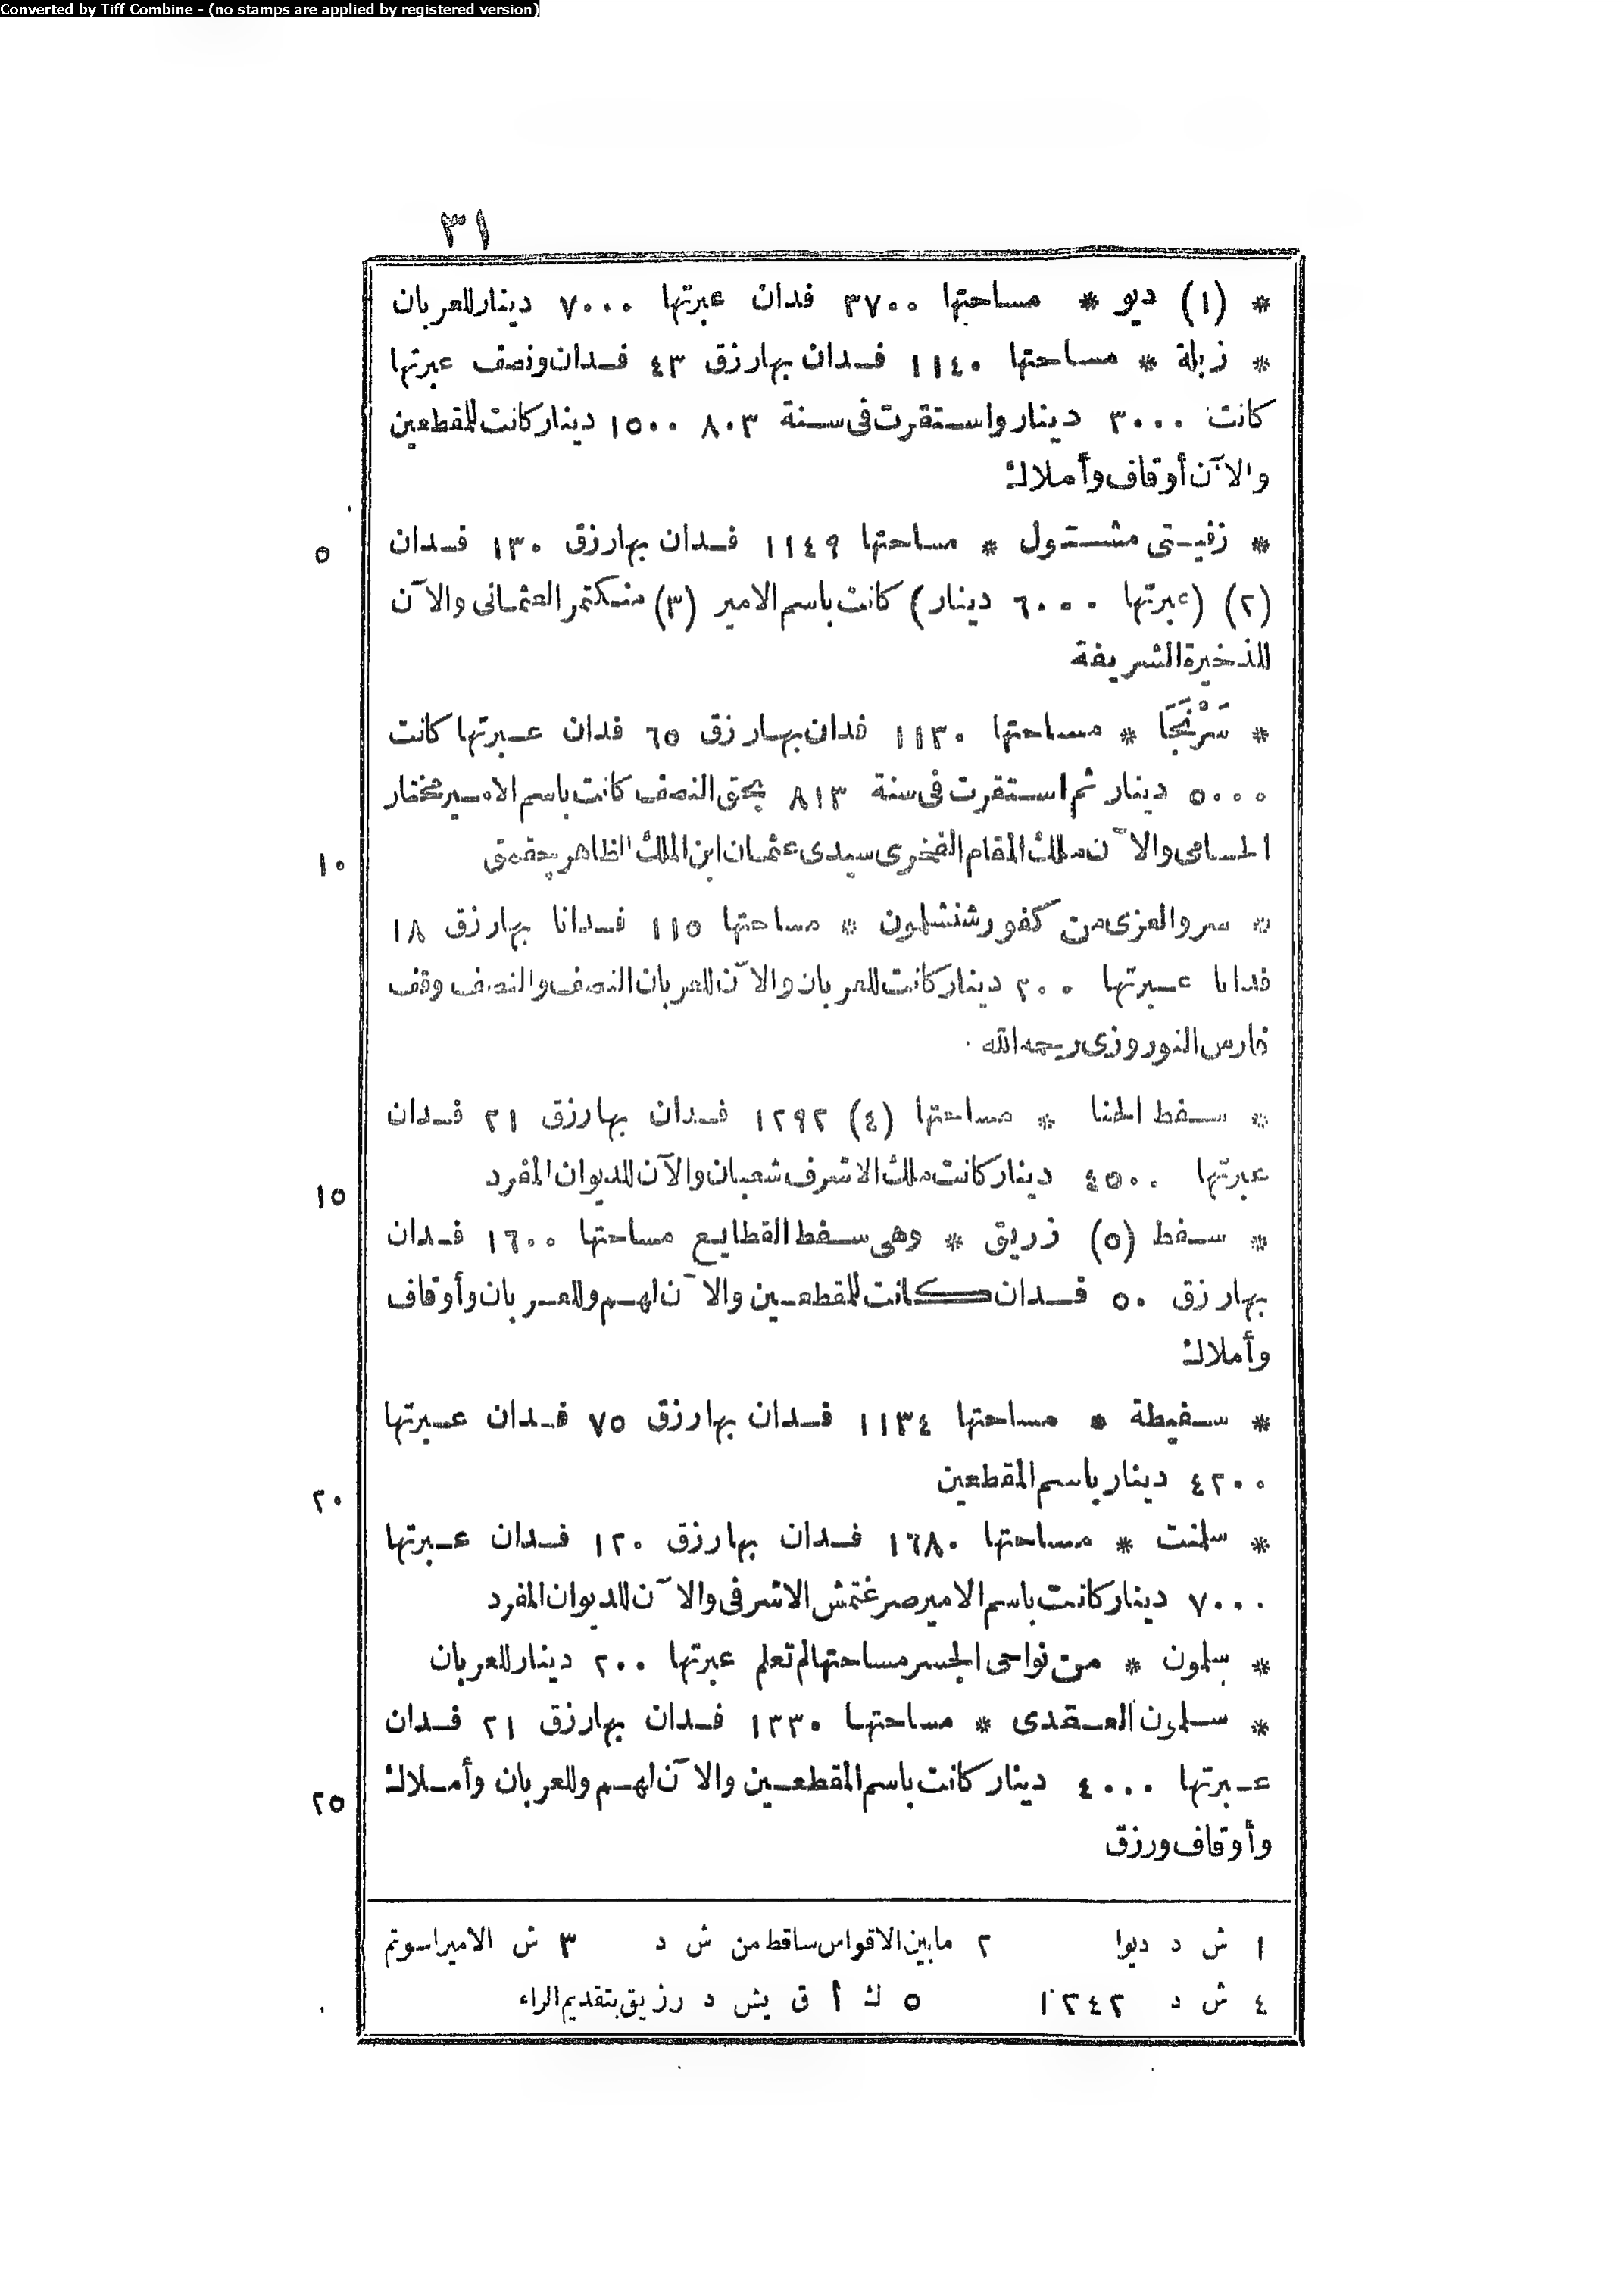 Converted by Tiff Combine - (no stamps are applied by registered version)
٣١
* (١) ديو * مساحتها ٣٧٠٠ فدان عبرتها ٧٠٠٠ دينار للعربان
* زبلة * مساحتها ١١٤٠ فـدان بها رزق ٤٣ فـدان ونصف عبرتها
كانت ٣٠٠٠ دينار واستقرت فى سنة ٨٠٣ ١٥٠٠ دينار كانت للمقطعين
والآن أوقاف وأملاك
٥
* زفيـتى مشـتول * مساحتها ١١٤٩ فـدان بها رزق ١٣٠ فـدان
(٢) (عبرتها ٦٠٠٠ دينار) كانت باسم الامير (٣) منـكتمر العثمانى والآن
للذخيرة الشريفة
* سَرْنَجَا * مساحتها ١١٣٠ فدان بها رزق ٦٥ فدان عـبرتها كانت
٥٠٠٠ دينار ثم استقرت فى سنة ٨١٣ بحق النصف كانت باسم الامـير مختار
١٠
الحسامى والآن ملك المقام الفخرى سيدى عثمان ابن الملك الظاهر جقمق
* سرو العزى من كفور شنشلمون * مساحتها ١١٥ فـدانا بها رزق ١٨
فدانا عـبرتها ٣٠٠ دينار كانت للعربان والآن للعربان النصف والنصف وقف
فارس النوروزى رحمه الله
* سـفط الحنا * مساحتها (٤) ١٢٩٢ فـدان بها رزق ٢١ فـدان
١٥
عبرتها ٤٥٠٠ دينار كانت ملك الاشرف شعبان والآن للديوان المفرد
* سـفط (٥) زريق * وهى سـفط القطايـع مساحتها ١٦٠٠ فـدان
بها رزق ٥٠ فـدان كانت للمقطعـين والآن لهـم وللعـربان وأوقاف
وأملاك
* سـفيطة * مساحتها ١١٣٤ فـدان بها رزق ٧٥ فـدان عـبرتها
٢٠
٤٢٠٠ دينار باسم المقطعين
* سلمنت * مساحتها ١٦٨٠ فـدان بها رزق ١٢٠ فـدان عـبرتها
٧٠٠٠ دينار كانت باسم الامير صرغتمش الاشرفى والآن للديوان المفرد
* سلمون * من نواحى الجسر مساحتها لم تعلم عبرتها ٢٠٠ دينار للعربان
* سـلمون العـقدى * مساحتهـا ١٣٣٠ فـدان بها رزق ٢١ فـدان
٢٥
عـبرتها ٤٠٠٠ دينار كانت باسم المقطعـين والآن لهـم وللعربان وأمـلاك
وأوقاف ورزق
١ ش د ديوا ٢ مابين الاقواس ساقط من ش د ٣ ش الامير اسوتم
٤ ش د ١٢٤٢ ٥ ك أ ق يش د رزيق بتقديم الراء